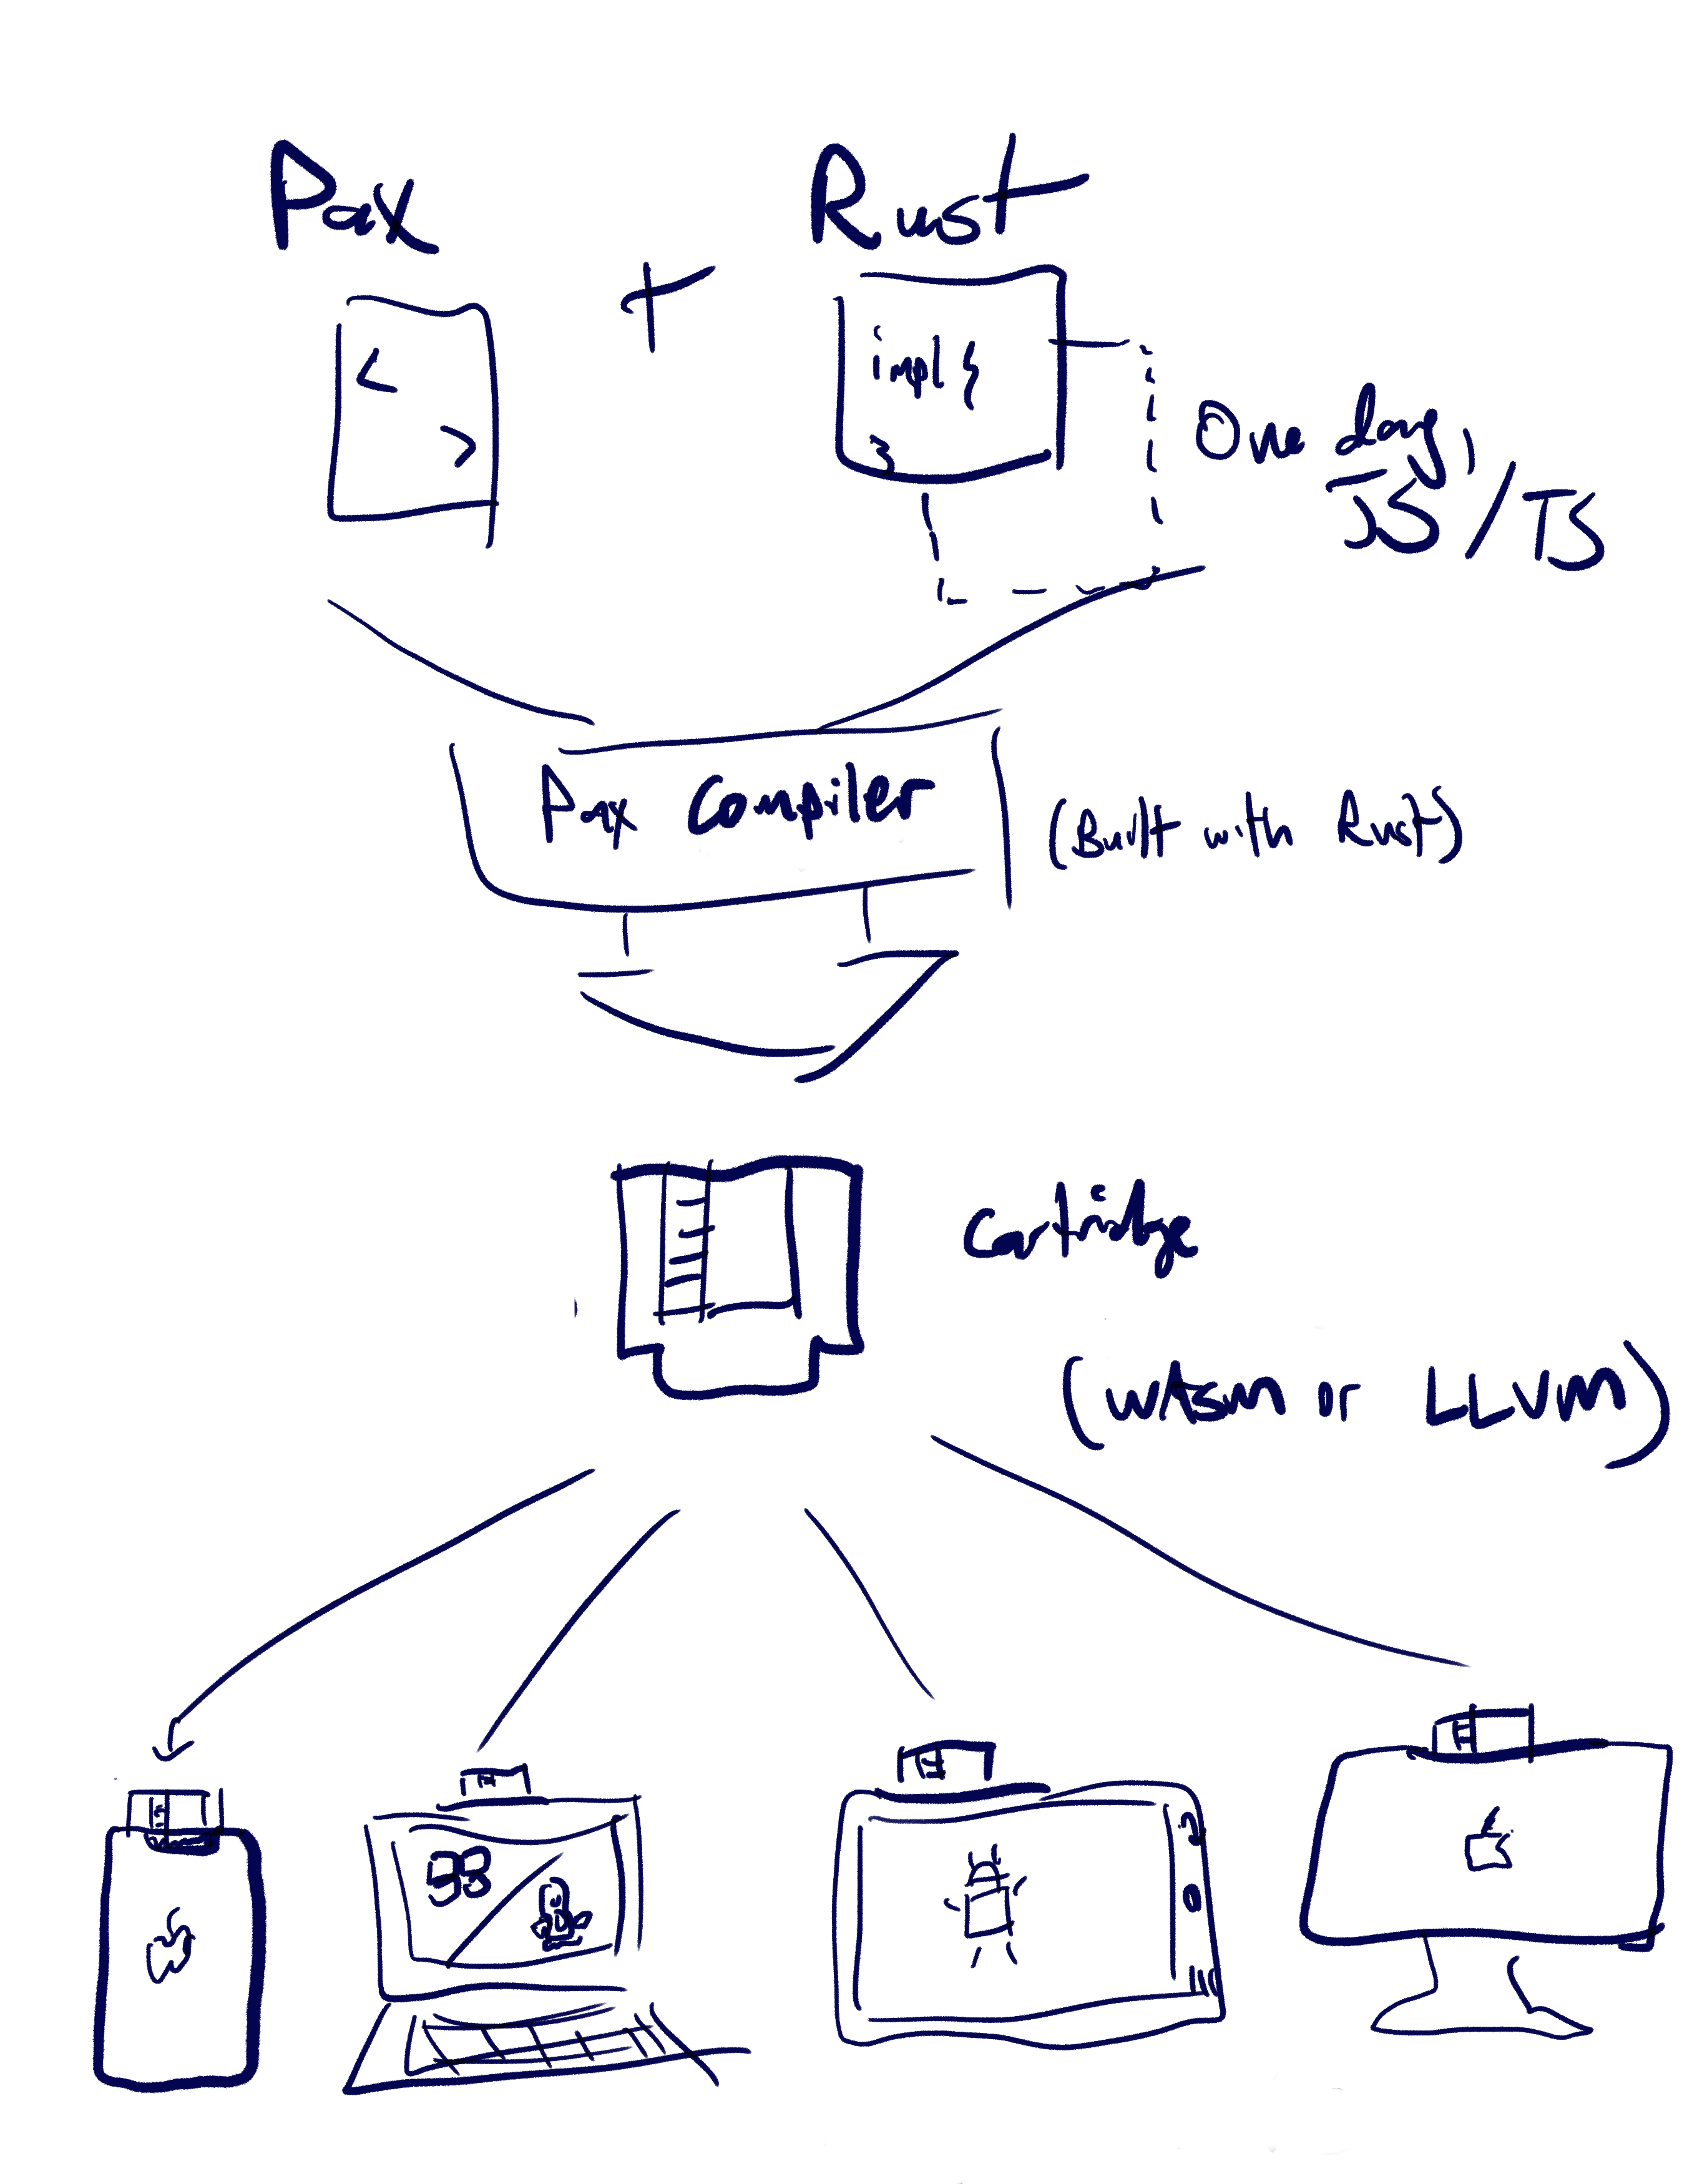 Pax
Rust
+
<
>
impl {
}
One day,
JS/TS
Pax Compiler
(Built with Rust)
Cartridge
(WASM or LLVM)